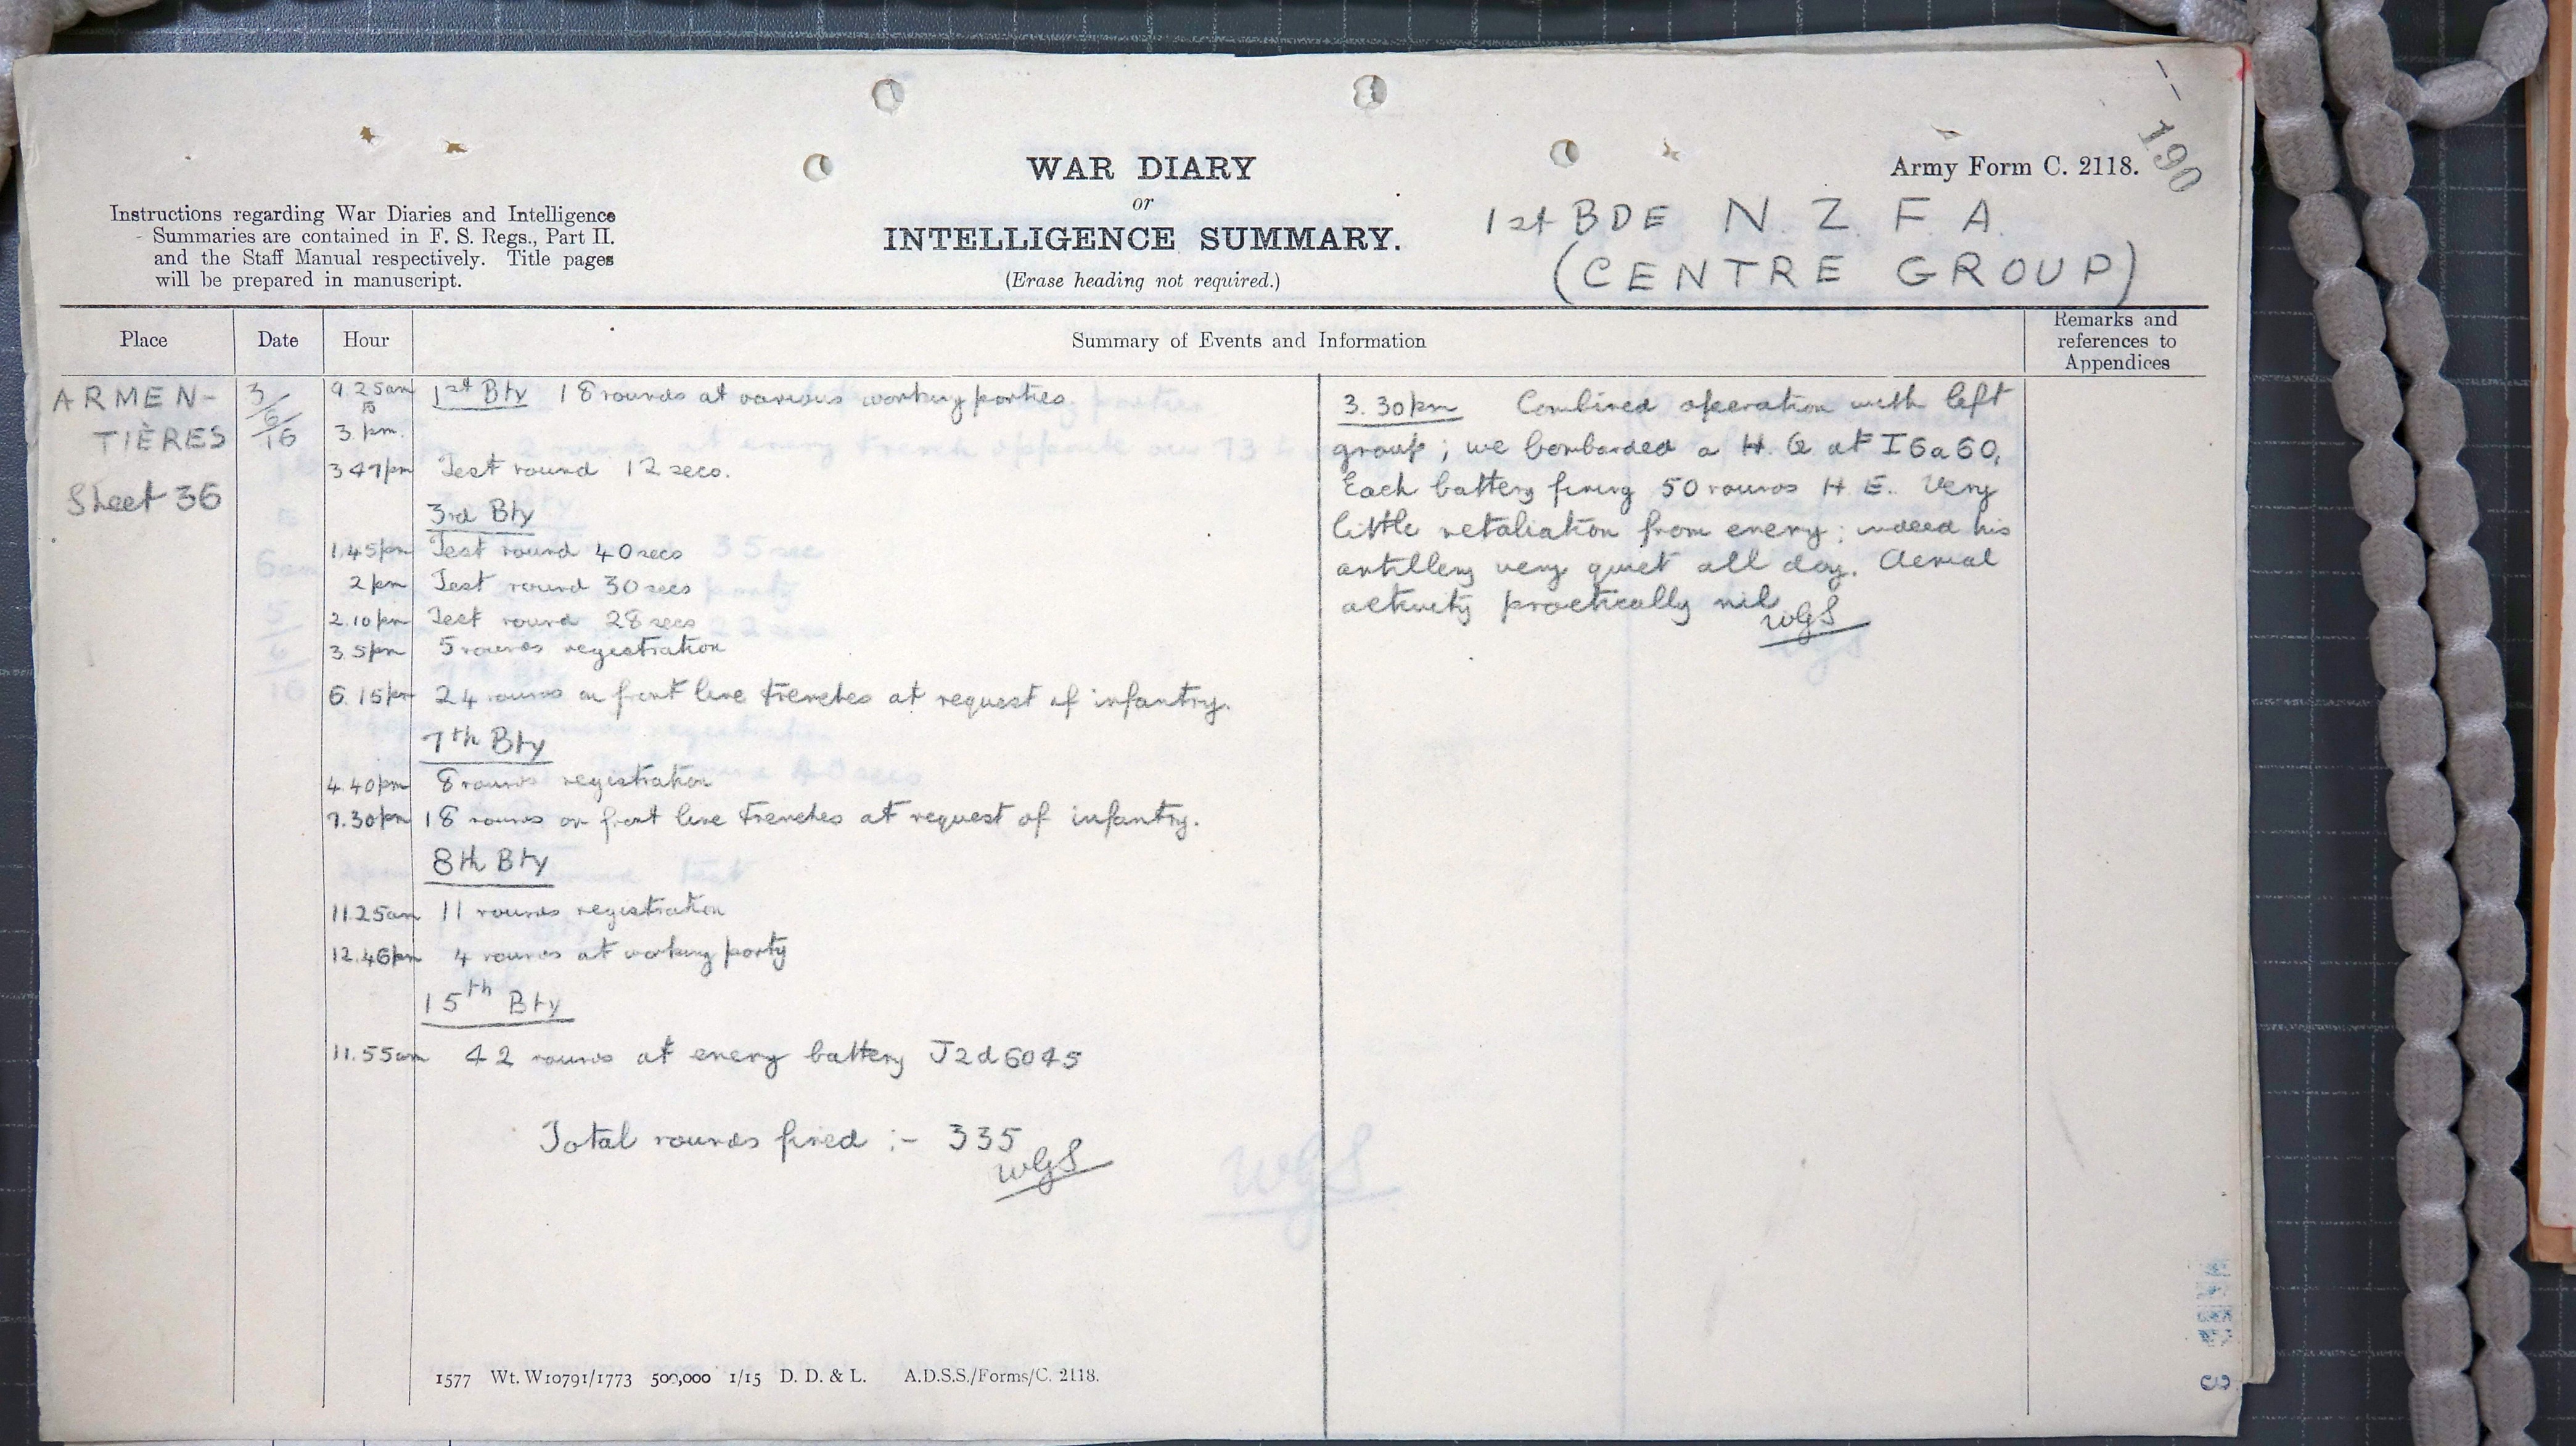 190
Army Form C. 2118.
WAR DIARY
or
INTELLIGENCE SUMMARY.
(Erase heading not required.)
Instructions regarding War Diaries and Intelligence
Summaries are contained in F. S. Regs., Part II.
and the Staff Manual respectively. Title pages
will be prepared in manuscript.
1st BDE N. Z. F. A.
(CENTRE GROUP)
Place Date Hour Summary of Events and Information Remarks and references to Appendices
ARMEN-
TIÈRES
Sheet 36
3/6/16
9.25am to 3 pm. 1st Bty 18 rounds at various working parties.
3 47pm Test round 12 secs.
3rd Bty
1.45pm Test round 40 secs
2 pm Test round 30 secs
2.10pm Test round 28 secs
3.5pm 5 rounds registration
6.15pm 24 rounds on front line trenches at request of infantry.
7th Bty
4.40pm 8 rounds registration
7.30pm 18 rounds on front line trenches at request of infantry.
8th Bty
11.25am 11 rounds registration
12.46pm 4 rounds at working party
15th Bty
11.55am 42 rounds at enemy battery J2d6045
Total rounds fired :- 335
WGS
3.30pm Combined operation with left
group; we bombarded a H.Q at I6a60,
Each battery firing 50 rounds H.E. Very
little retaliation from enemy; indeed his
artillery very quiet all day. Aerial
activity practically nil
WGS
1577 Wt. W10791/1773 500,000 1/15 D. D. & L. A.D.S.S./Forms/C. 2118.